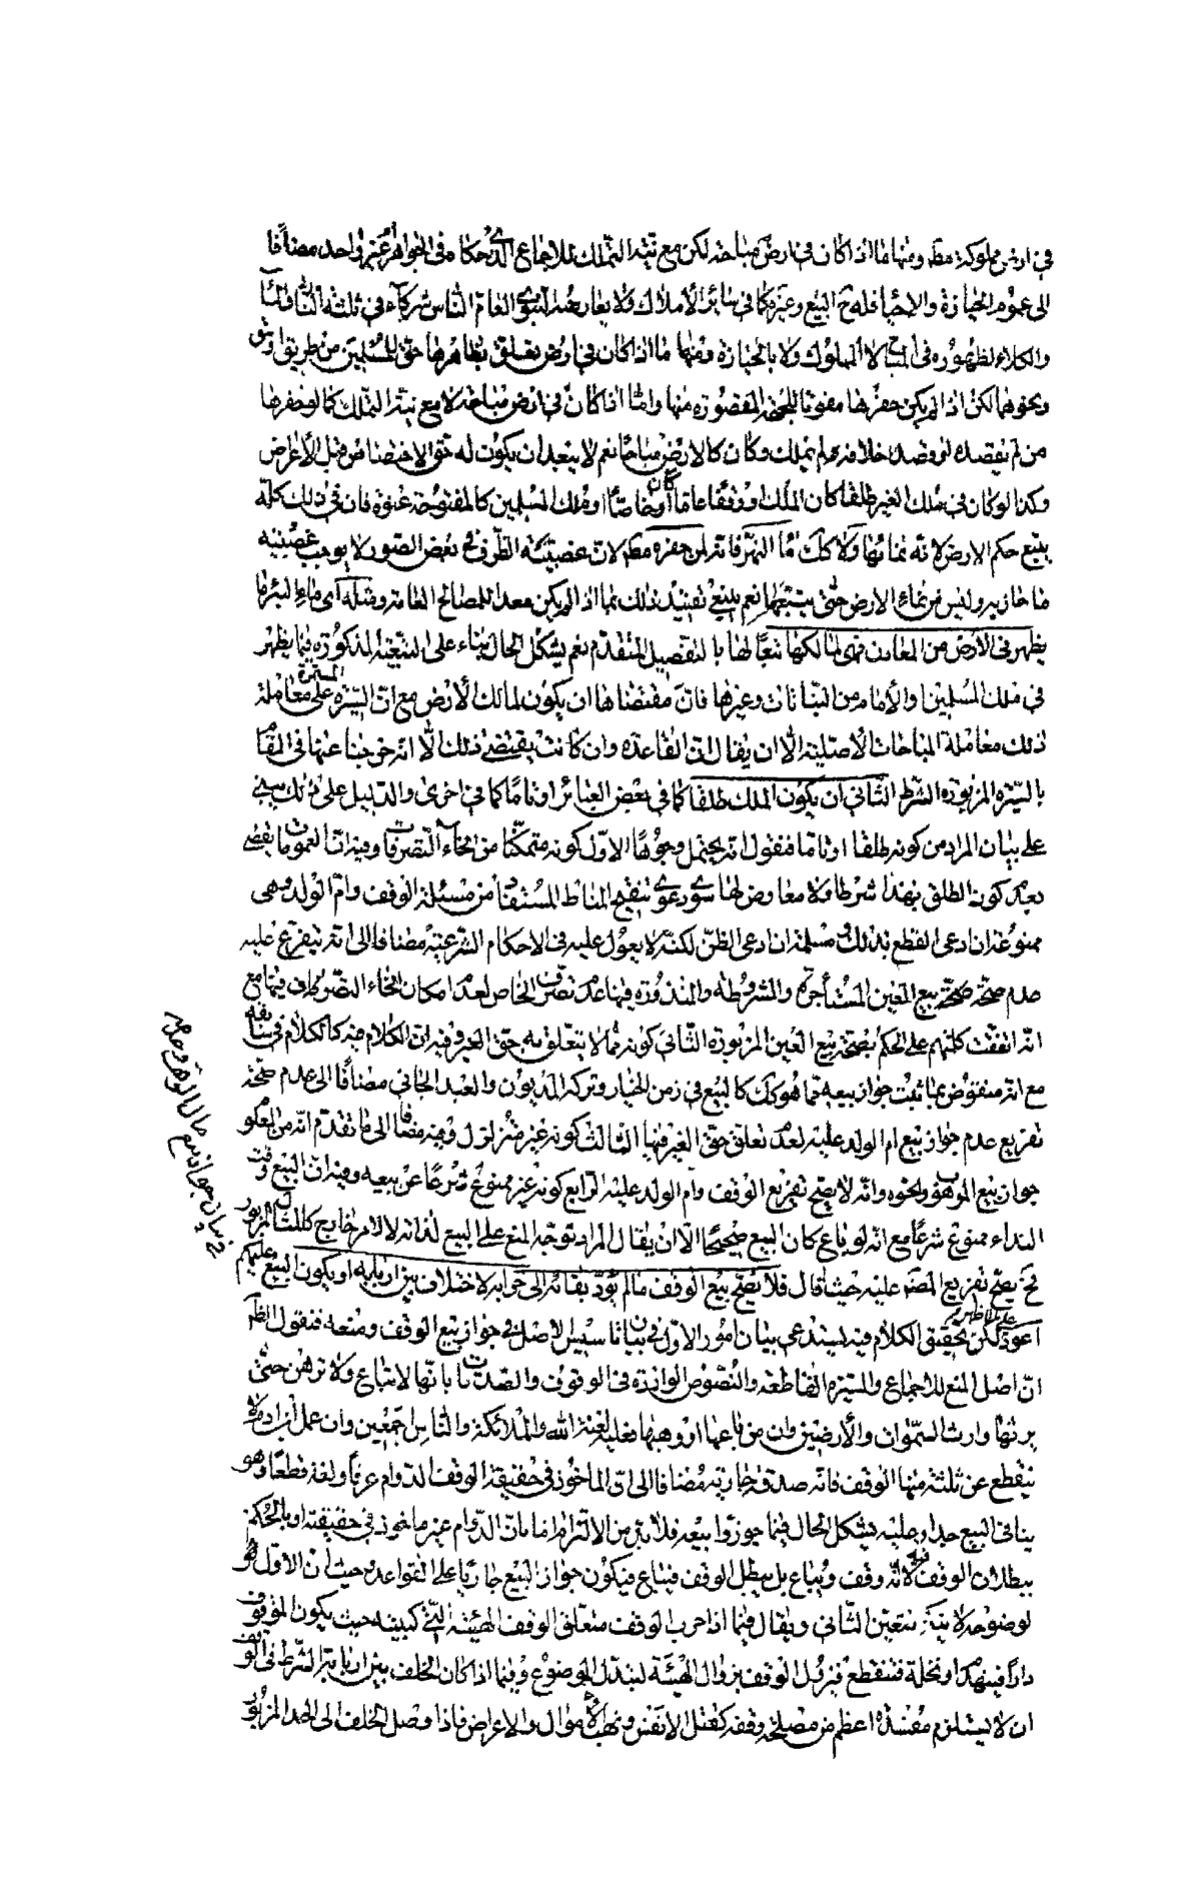 في ارض مملوكة مطـ ومنها ما اذا كان في ارض مباحة لكن مع نيّة التملك للاجماع الذي حكاه في الجواهر عن غير واحد مضافا
الى عموم الحيازة والاحياء فله ح البيع وغيره كما في سائر الأملاك ولا يعارضه النبوي العام الناس شركاء في ثلثة النار والماء
والكلاء لظهوره في المباح لا المملوك ولا بالحيازة ومنها ما اذا كان في ارض تعلق بظاهرها حق للمسلمين من طريق او سوق
ونحوهما لكن اذا لم يكن حفرها مفوتا للجهة المقصودة منها وامّا اذا كان في ارض مباحة لا مع نية التملك كما لو حفرها
من لم يقصده او قصد خلافه لم يملك وكان كالارض مباحا نعم لا يبعد ان يكون له حق الاختصاص قبل الأعراض
وكذا لو كان في ملك الغير طلقا كان الملك او وقفا عاما كان او خاصّا او ملك المسلمين كالمفتوحة عنوة فان في ذلك كلّه
يتبع حكم الارض لانه نماؤها ولا كك ماء النهر فانه لمن حفره مطـ لان غصبيّة الظرف في بعض الصور لا يوجب غصبيّة
ما حاز به وليس من نماء الارض حتى يتبعها نعم ينبغي تقييد ذلك بما اذا لم يكن معدا للمصالح العامة ومثله اى ماء البئر ما
يظهر في الأرض من المعادن فهى لمالكها تبعًا لها بالتفصيل المتقدّم نعم يشكل الحال بناء على التبعيّة المذكورة فيما يظهر
في ملك المسلمين والأمام من النباتات وغيرها فانّ مقتضاها ان يكون لمالك الأرض مع انّ السيرة المستمرة على معاملة
ذلك معاملة المباحات الأصلية الّا ان يقال انّ القاعدة وان كانت يقتضي ذلك الّا انه خرجنا عنها في المقام
بالسيرة المزبورة الشرط الثاني ان يكون الملك طلقا كما في بعض العبائر او تامّا كما في اخرى والدليل على ذلك يبتني
على بيان المراد من كونه طلقا او تامّا فنقول انه يحتمل وجوهًا الاوّل كونه متمكّنا من انحاء التصرفات وفيه انّ العمومات يقضي
بعدم كونه الطلق بهذا شرطا ولا معارض لها سوى دعوى تنقيح المناط المستفاد من مسئلة الوقف وام الولد وهى
ممنوعة ان ادعى القطع بذلك مسلمة ان ادعى الظنّ لكنّه لا يعول عليه في الاحكام الشرعيّة مضافا الى انه يتفرع عليه
عدم صحّة بيع العين المستأجرة والمشروطة والمنذورة فيها عدم تصرف الخاص لعدم امكان انحاء التصرفات فيها مع
انّه اتفقت كلمتهم على الحكم بصحّة بيع العين المزبورة الثاني كونه مما لا يتعلق به حق الغير وفيه ان الكلام فيه كالكلام في سابقه
مع انه منقوض بما ثبت جواز بيعه مما هو كك كالبيع في زمن الخيار وتركة المديون والعبد الجاني مضافا الى عدم صحّة
تفريع عدم جواز بيع ام الولد عليه لعدم تعلق حق الغير فيها الثالث كونه غير متزلزل وفيه مضافا الى ما تقدم انّه من المعلوم
جواز بيع الموهوب ونحوه وانّه لا يصح تفريع الوقف وام الولد عليه الرابع كونه غير ممنوع شرعًا عن بيعه وفيه ان البيع وقت
النداء ممنوع شرعًا مع انه لو باع كان البيع صحيحًا الا ان يقال المراد توجّه المنع على البيع لذاته لا لامر خارج كالمثال المزبور
فح يصح تفريع المصـ عليه حيث قال فلا يصحّ بيع الوقف ما لم يؤدّ بقائه الى خرابه لاختلاف بين اربابه او يكون البيع
اعود لكن تحقيق الكلام فيه يستدعى بيان أمور الاوّل في بيان تاسيس الاصل في جواز بيع الوقف ومنعه فنقول الظـ
انّ اصل المنع للاجماع والسيرة القاطعة والنصوص الواردة في الوقوف والصدقات بانّها لا تباع ولا توهب حتى
يرثها وارث السموات والأرضين وان من باعها او وهبها فعليه لعنة الله والملائكة والناس اجمعين وان عمل ابن ادم لا
ينقطع عن ثلثة منها الوقف فانّه صدقة جارية مضافا الى انّ الماخوذ في حقيقة الوقف الدوام عرفًا ولغة قطعًا وهو
ينافي البيع جدا وعليه يشكل الحال فيما جوزوا بيعه فلا بدّ من الالتزام اما بانّ الدّوام غير ماخوذ في حقيقته او بالحكم
ببطلان الوقف فيه لا انّه وقف ويباع بل يبطل الوقف فيباع فيكون جواز البيع جاريًا على القواعد وحيث ان الاوّل هو
لوضوحه لا ينكر يتعيّن الثّاني ويقال فيما اذا خرب الوقف متعلّق الوقف الهيئة التي كبيته حيث يكون الموقوف
دارًا فينهدم او نخلة فتنقطع فيزول الوقف بزوال الهيئة لتبدّل الموضوع وفيما اذا كان الخلف بين اربابه الشرط في الوقف
ان لا يستلزم مفسدة اعظم من مصلحة وقفه كقتل الانفس ونهب الاموال والاعراض فاذا وصل الخلف الى الحد المزبور
في بيان جواز بيع مال الوقف وعدمه